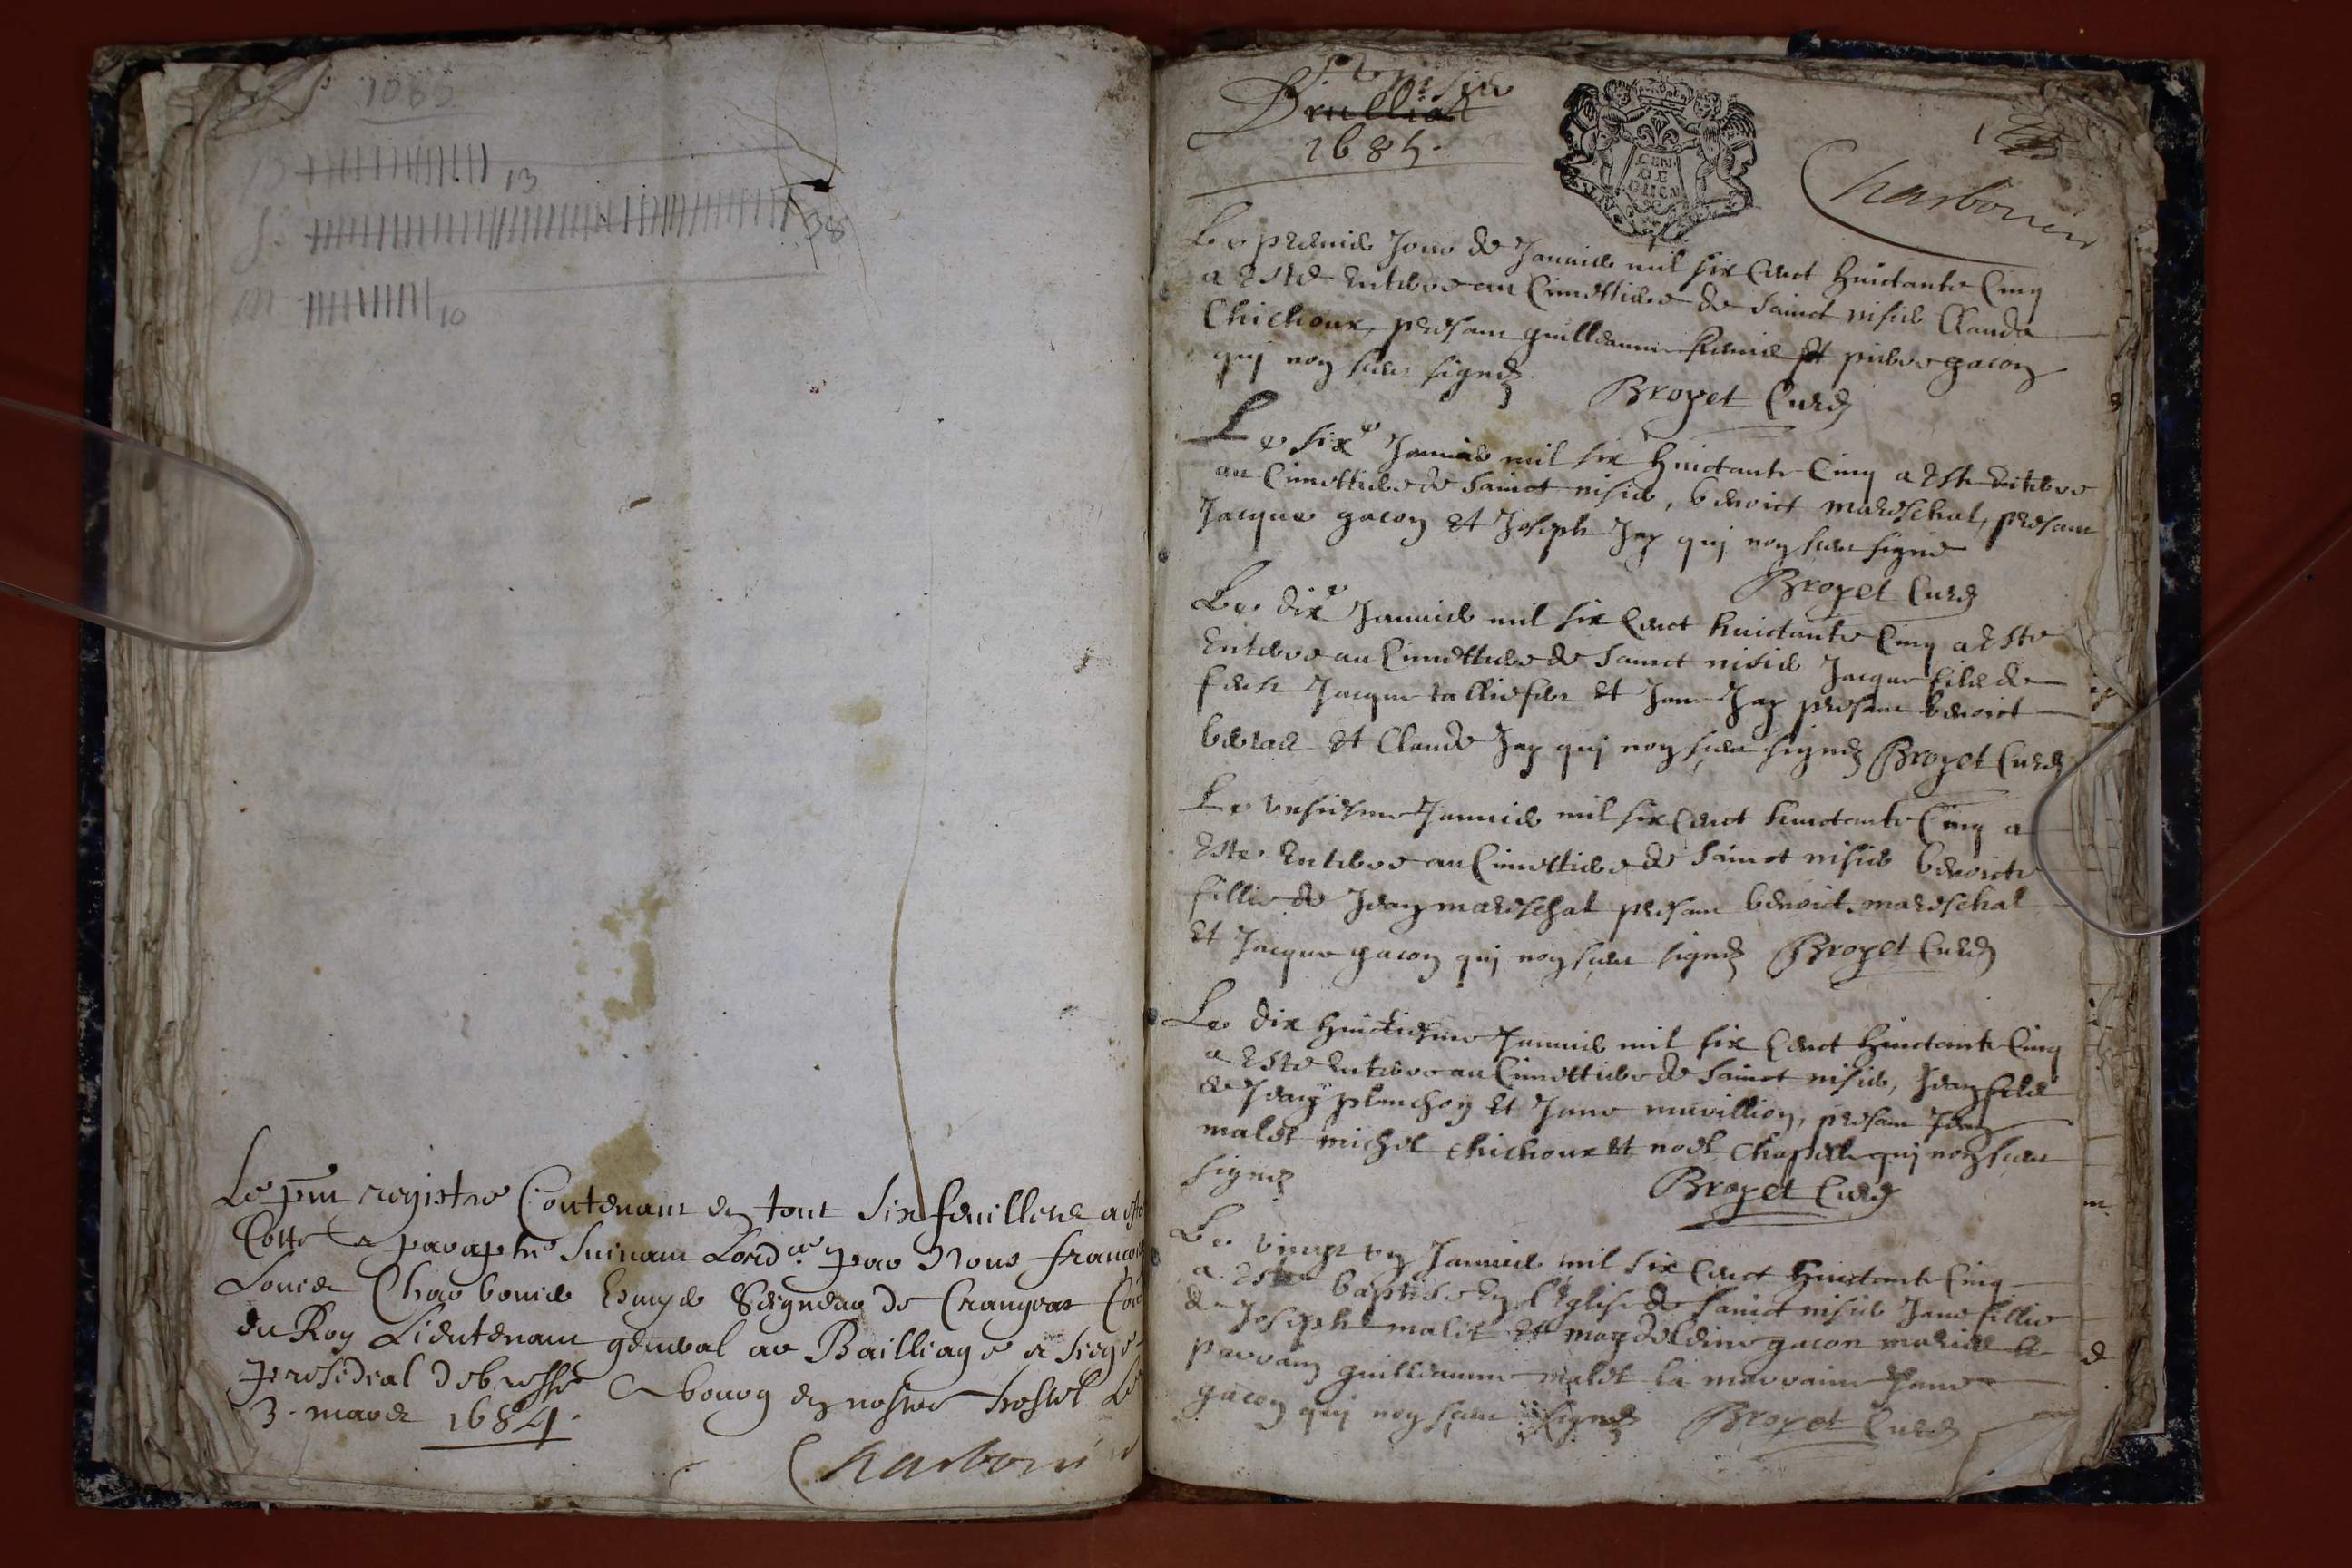 1685
B 13
S. 38
M 10
Le pnt registre Contenant en tout Six feuillets a esté
Cotté & paraphé Suivant Lord.ce par Nous françois
Louis Charbonier Escuyer Seigneur de Crangeat Con
du Roy Lieutenant general au Bailliage et siege
presidial de bresse A bourg en nostre hostel Le
3. mars 1684.
Charbonier
St nisier
Brulliat
1685.
GEN
DE
1
Charbonier
Le premier Jour de Janvier mil six Cent huictante Cinq
a esté enterre au Cimettiere de Sainct nisier Claude
Chichoux, presant guilleaume et pierre gacon
quj non sceu signé Broyet Curé
Le six.e Janvier mil six huictante Cinq a este enterre
au Cimettiere de Sainct nisier, benoict mareschal, presant
Jacque gacon et Joseph Jay quj non sceu signé
Broyet Curé
Le dix.e Janvier mil six Cent huictante Cinq a este
enterre au Cimettiere de Sainct nisier Jacque fils de
feu Jacque et Jane Jay presant benoict
et Claude Jay quj non sceu signé Broyet Curé
Le unsiesme Janvier mil six Cent huictante Cinq a
este enterre au Cimettiere de Sainct nisier benoicte
fillie de Jean mareschal presant benoict mareschal
et Jacque gacon quj non sceu signé Broyet Curé
Le dix huictiesme Janvier mil six Cent huictante Cinq
a este enterre au Cimettiere de Sainct nisier, Jean fils
de Jean planchon et Jane, presant Jean
malet michel chichoux et noel Chapelle quj non sceu
signé Broyet Curé
Le vingt un Janvier mil six Cent huictante Cinq
a este baptisee en l'Eglise de Sainct nisier Jane fillie
de Joseph malet et magdeleine gacon mariés le
parrain guilleaume malet la marraine Jane
gacon quj non sceu signé Broyet Curé